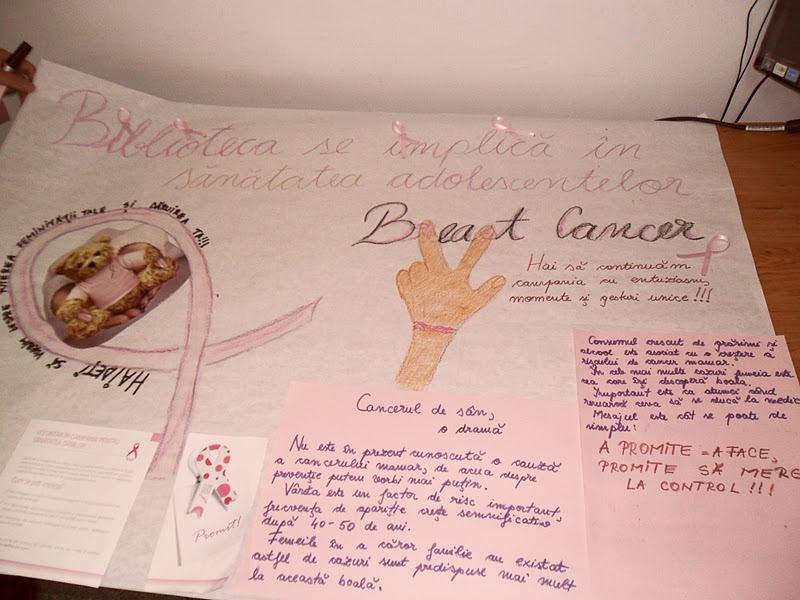 Biblioteca se implică în
sănătatea adolescentelor
Breast Cancer
Hai să continuăm
campania cu entuziasm,
momente și gesturi unice !!!
HAIDEȚI SĂ VORBIM DESPRE PUTEREA FEMINITĂȚII TALE ȘI
Promit!
Cancerul de sân,
o dramă
Nu este în prezent cunoscută o cauză
a cancerului mamar, de aceea despre
prevenție putem vorbi mai puțin.
Vârsta este un factor de risc important,
frecvența de apariție crește semnificativ
după 40-50 de ani.
Femeile în a căror familie au existat
astfel de cazuri sunt predispuse mai mult
la această boală.
Consumul crescut de grăsimi și
alcool este asociat cu o creștere a
riscului de cancer mamar.
În cele mai multe cazuri femeia este
cea care își descoperă boala.
Important este ca atunci când
remarcă ceva să se ducă la medic
Mesajul este cât se poate de
simplu:
A PROMITE = A FACE,
PROMITE SĂ MERE
LA CONTROL !!!